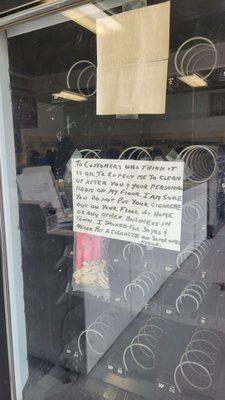 TO CUSTOMERS WHO THINK IT
IS OK TO EXPECT ME TO CLEAN
UP AFTER YOU & YOUR PERSONAL
HABIT ON MY FLOOR I AM SURE
YOU DO NOT PUT YOUR CIGARETTE
OUT ON YOUR FLOOR AT HOME
OR ANY OTHER BUSINESS IN
TOWN. I SMOKED FOR 30 YRS &
NEVER PUT A CIGARETTE ON SOMEONES
FLOOR.